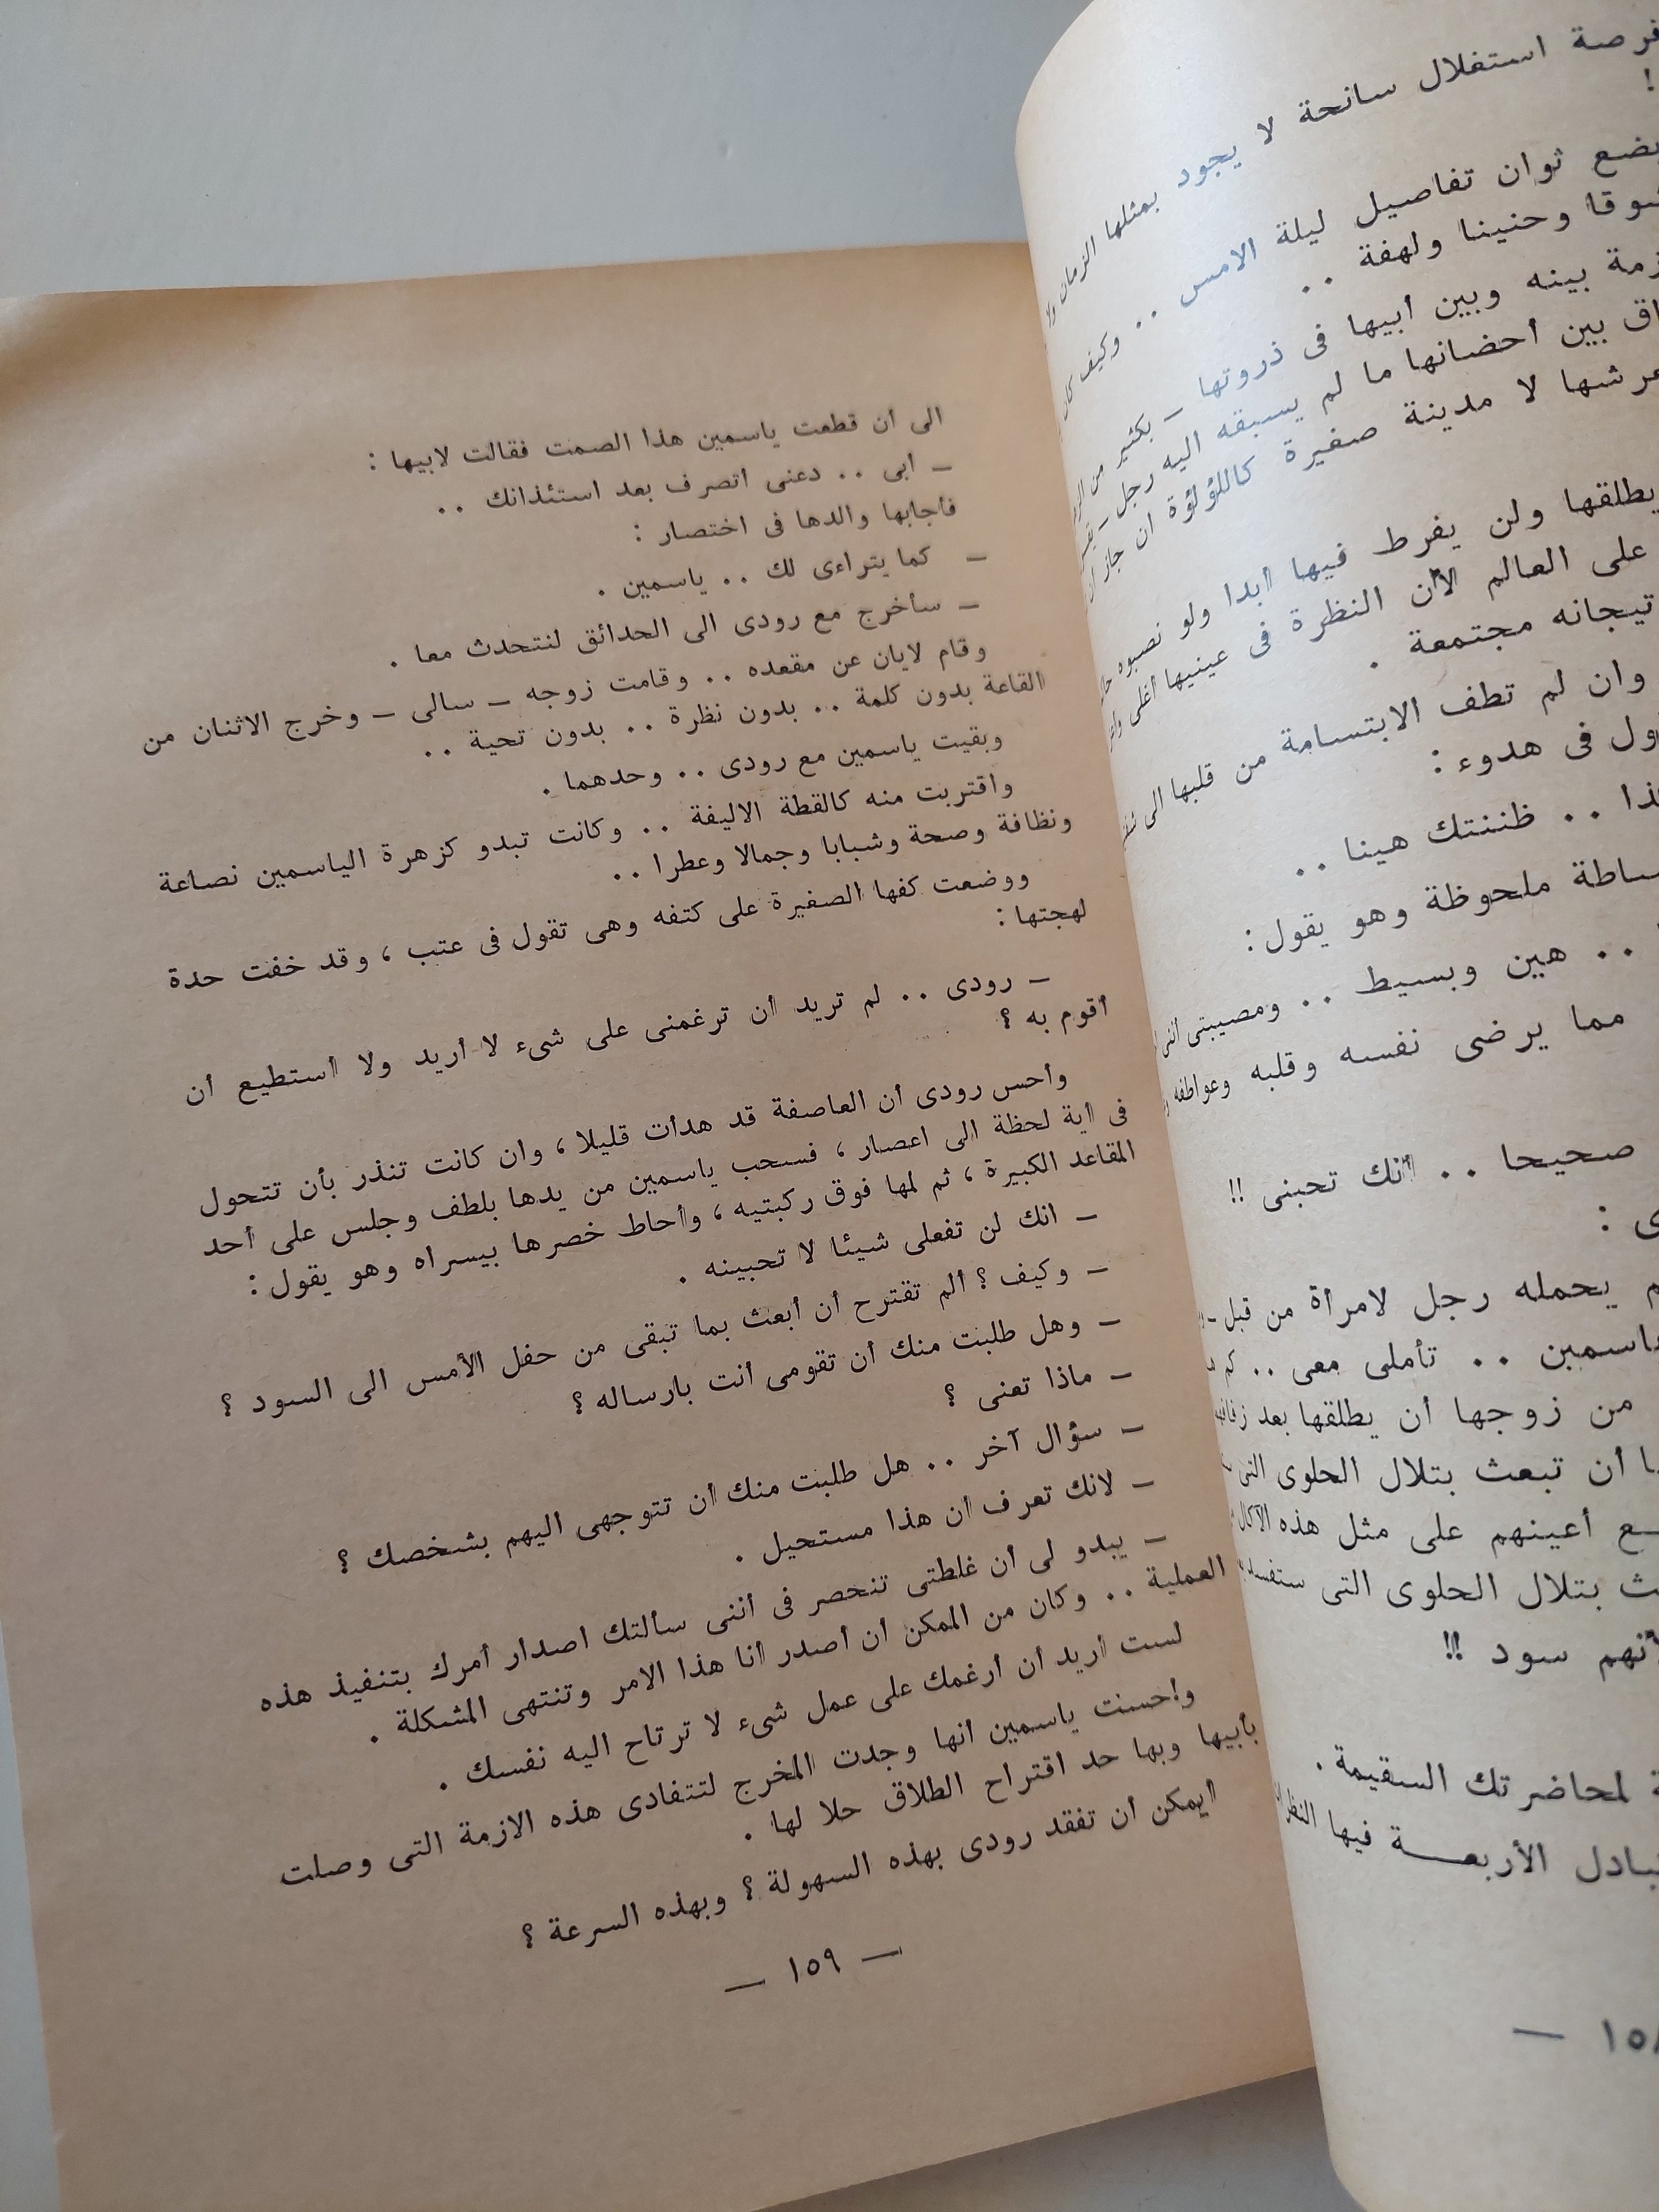 فرصة استغلال سانحة لا يجود بمثلها الزمان
!
بضع ثوان تفاصيل ليلة الامس . . وكيف كان
شوقا وحنينا ولهفة . .
بينه وبين أبيها فى ذروتها – بكثير من
بين أحضانها ما لم يسبقه اليه رجل –
عرشها لا مدينة صغيرة كاللؤلؤة ان جاز
يطلقها ولن يفرط فيها أبدا ولو نصبوه
على العالم لأن النظرة فى عينيها أغلى
تيجانه مجتمعة .
وان لم تطف الابتسامة من قلبها الى
فى هدوء :
. . ظننتك هينا . .
ملحوظة وهو يقول :
. . هين وبسيط . . ومصيبتى
مما يرضى نفسه وقلبه وعواطفه
صحيحا . . أنك تحبنى !!
:
يحمله رجل لامرأة من قبل –
ياسمين . . تأملى معى . . كم
من زوجها أن يطلقها بعد
أن تبعث بتلال الحلوى التى
أعينهم على مثل هذه
بتلال الحلوى التى
سود !!
لمحاضرتك السقيمة .
الأربعـــة فيها
١٥٨ —
الى أن قطعت ياسمين هذا الصمت فقالت لابيها :
– أبى . . دعنى أتصرف بعد استئذانك . .
فأجابها والدها فى اختصار :
– كما يتراءى لك . . ياسمين .
– سأخرج مع رودى الى الحدائق لنتحدث معا .
وقام لايان عن مقعده . . وقامت زوجه – سالى – وخرج الاثنان من
القاعة بدون كلمة . . بدون نظرة . . بدون تحية . .
وبقيت ياسمين مع رودى . . وحدهما .
واقتربت منه كالقطة الاليفة . . وكانت تبدو كزهرة الياسمين نصاعة
ونظافة وصحة وشبابا وجمالا وعطرا . .
ووضعت كفها الصغيرة على كتفه وهى تقول فى عتب ، وقد خفت حدة
لهجتها :
– رودى . . لم تريد أن ترغمنى على شىء لا أريد ولا أستطيع أن
أقوم به ؟
وأحس رودى أن العاصفة قد هدأت قليلا ، وان كانت تنذر بأن تتحول
فى أية لحظة الى اعصار ، فسحب ياسمين من يدها بلطف وجلس على أحد
المقاعد الكبيرة ، ثم لمها فوق ركبتيه ، وأحاط خصرها بيسراه وهو يقول :
– انك لن تفعلى شيئا لا تحبينه .
– وكيف ؟ ألم تقترح أن أبعث بما تبقى من حفل الأمس الى السود ؟
– وهل طلبت منك أن تقومى أنت بارساله ؟
– ماذا تعنى ؟
– سؤال آخر . . هل طلبت منك أن تتوجهى اليهم بشخصك ؟
– لانك تعرف أن هذا مستحيل .
– يبدو لى أن غلطتى تنحصر فى أننى سألتك اصدار أمرك بتنفيذ هذه
العملية . . وكان من الممكن أن أصدر أنا هذا الامر وتنتهى المشكلة .
لست أريد أن أرغمك على عمل شىء لا ترتاح اليه نفسك .
وأحست ياسمين أنها وجدت المخرج لتتفادى هذه الازمة التى وصلت
بأبيها وبها حد اقتراح الطلاق حلا لها .
أيمكن أن تفقد رودى بهذه السهولة ؟ وبهذه السرعة ؟
— ١٥٩ —